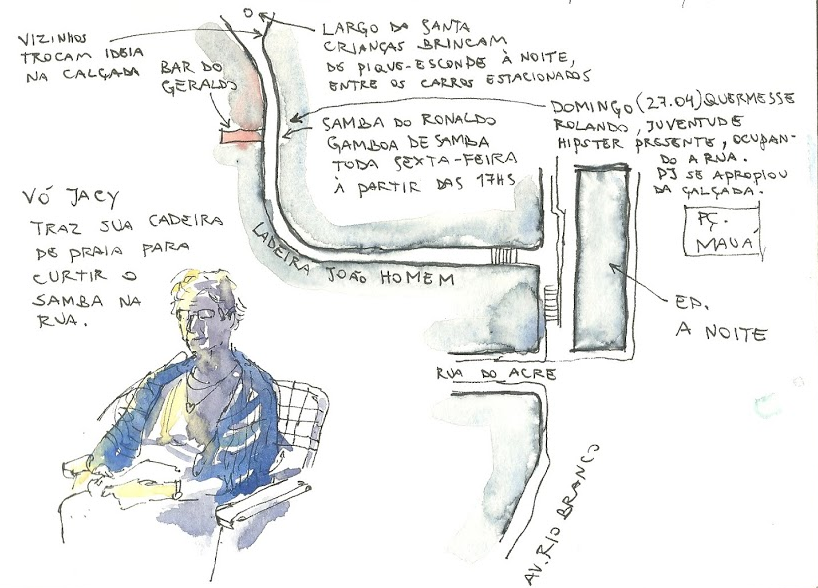 VIZINHOS
TROCAM IDEIA
NA CALÇADA
BAR DO
GERALDO
LARGO DA SANTA
CRIANÇAS BRINCAM
DE PIQUE-ESCONDE À NOITE,
ENTRE OS CARROS ESTACIONADOS
DOMINGO (27.04) QUERMESSE
ROLANDO, JUVENTUDE
HIPSTER PRESENTE, OCUPAN-
DO A RUA.
PJ SE APROPIOU
DA CALÇADA.
SAMBA DO RONALDO
GAMBOA DE SAMBA
TODA SEXTA-FEIRA
À PARTIR DAS 17HS
VÓ JACY
TRAZ SUA CADEIRA
DE PRAIA PARA
CURTIR O
SAMBA NA
RUA.
PÇ.
MAUÁ
LADEIRA JOÃO HOMEM
ED.
A NOITE
RUA DO ACRE
AV. RIO BRANCO